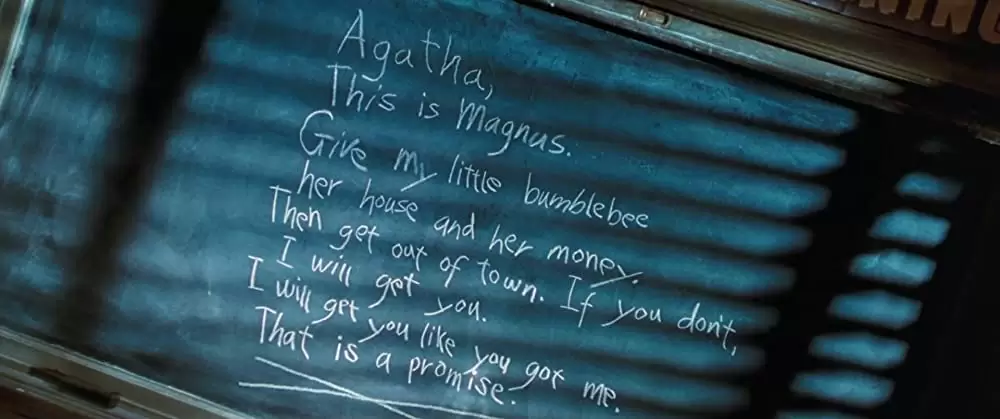 NING
Agatha,
This is Magnus.
Give my little bumblebee
her house and her money.
Then get out of town. If you don't,
I will get you.
I will get you like you got me.
That is a promise.